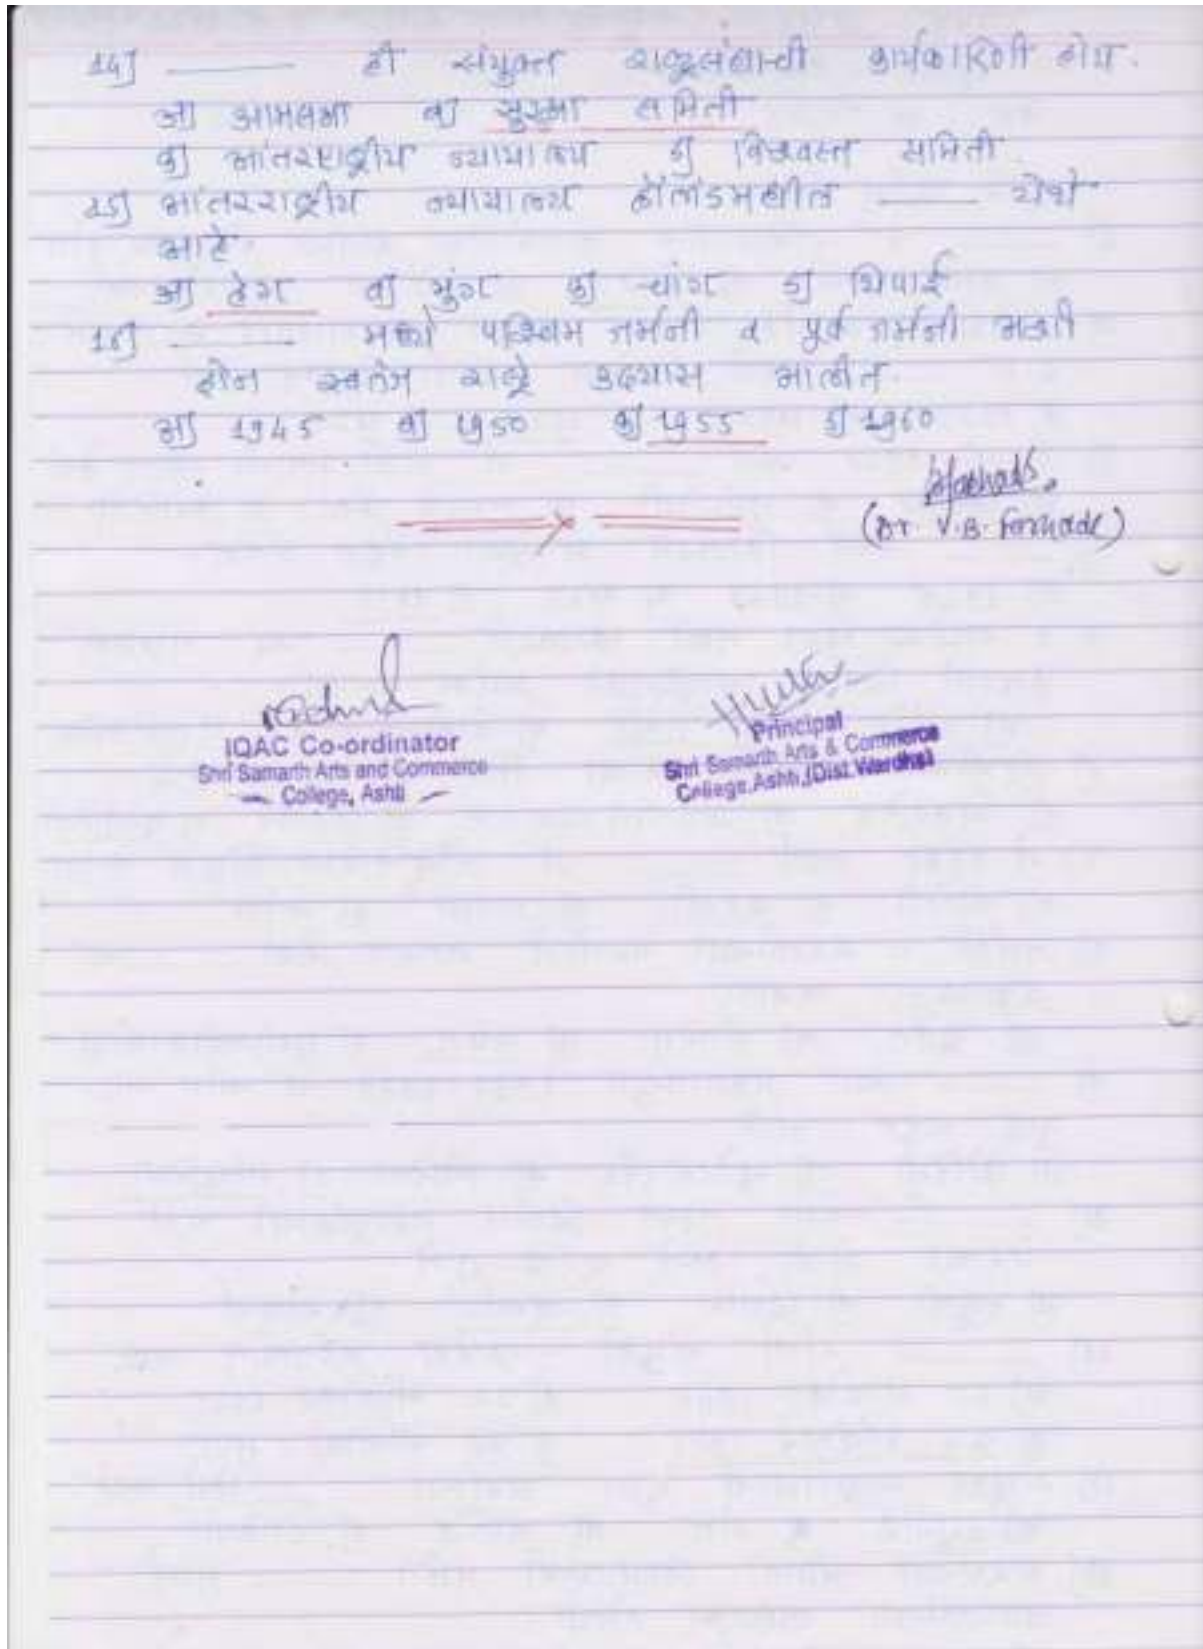 14] ——— ही संयुक्त राष्ट्रसंघाची कार्यकारिणी होय.
अ] आमसभा ब] सुरक्षा समिती
क] आंतरराष्ट्रीय न्यायालय ड] विश्वस्त समिती
15] आंतरराष्ट्रीय न्यायालय हॉलंडमधील ——— येथे
आहे.
अ] हेग ब] मुंग क] चांग ड] शिपाई
16] ——— मध्ये पश्चिम जर्मनी व पूर्व जर्मनी अशी
दोन स्वतंत्र राष्ट्रे उदयास आलीत.
अ] 1945 ब] 1950 क] 1955 ड] 1960
(Dr. V.B.
IQAC Co-ordinator
Shri Samarth Arts and Commerce
College, Ashti
Principal
Shri Samarth Arts & Commerce
College, Ashti, (Dist. Wardha)